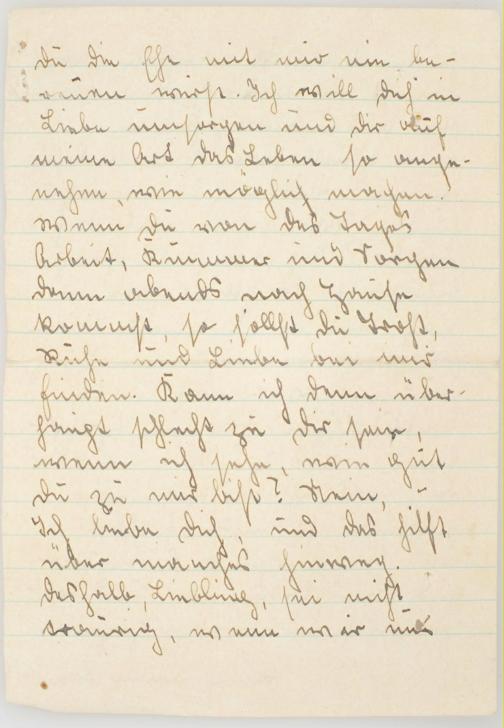 du die Ehe mit mir nie be-
reuen wirst. Ich will dich in
Liebe umsorgen und dir auf
meine Art das Leben so ange-
nehm, wie möglich machen.
Wenn du von des Tages
Arbeit, Kummer und Sorgen
dann abends nach Hause
kommst, so sollst du Trost,
Ruhe und Liebe bei mir
finden. Kann ich denn über-
haupt schlecht zu dir sein,
wenn ich sehe, wie gut
du zu mir bist? Nein, –
Ich liebe dich, und das hilft
über manches hinweg.
Deshalb, Liebling, sei nicht
traurig, wenn wir uns